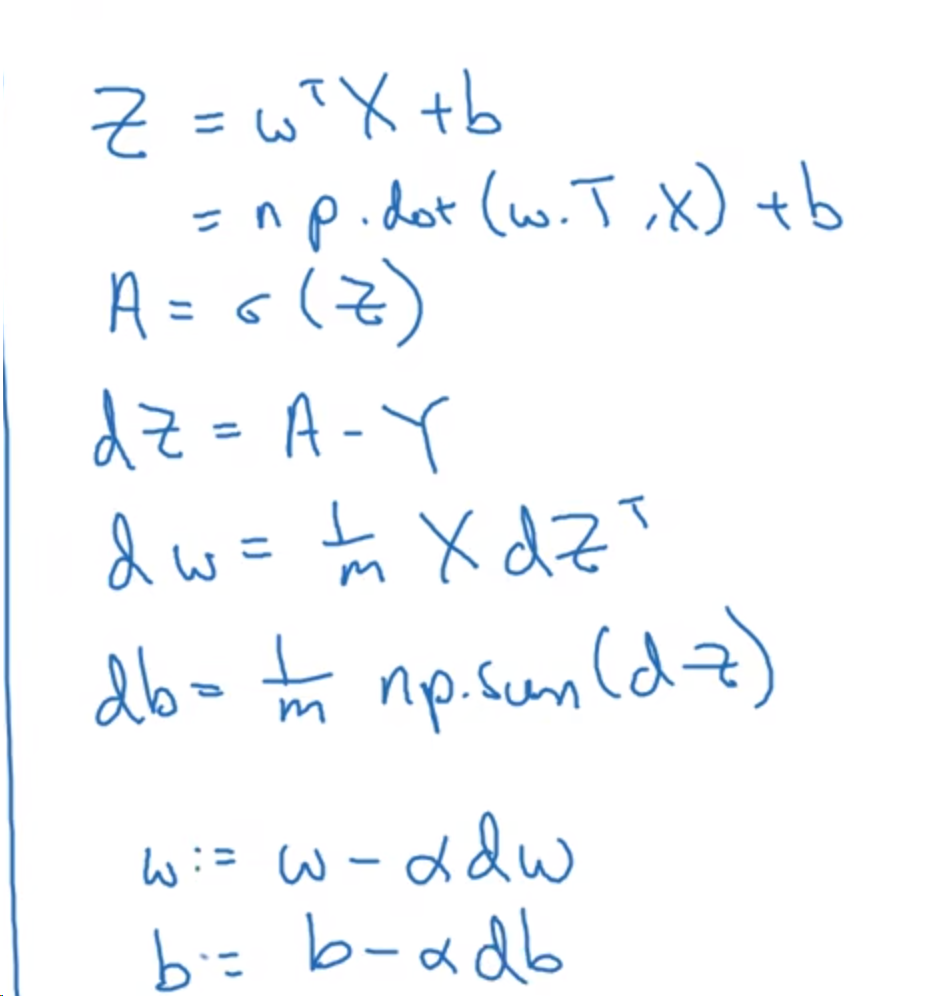 Z = wᵀX + b
= np.dot(w.T, X) + b
A = σ(Z)
dZ = A - Y
dw = 1/m X dZᵀ
db = 1/m np.sum(dZ)
w := w - α dw
b := b - α db